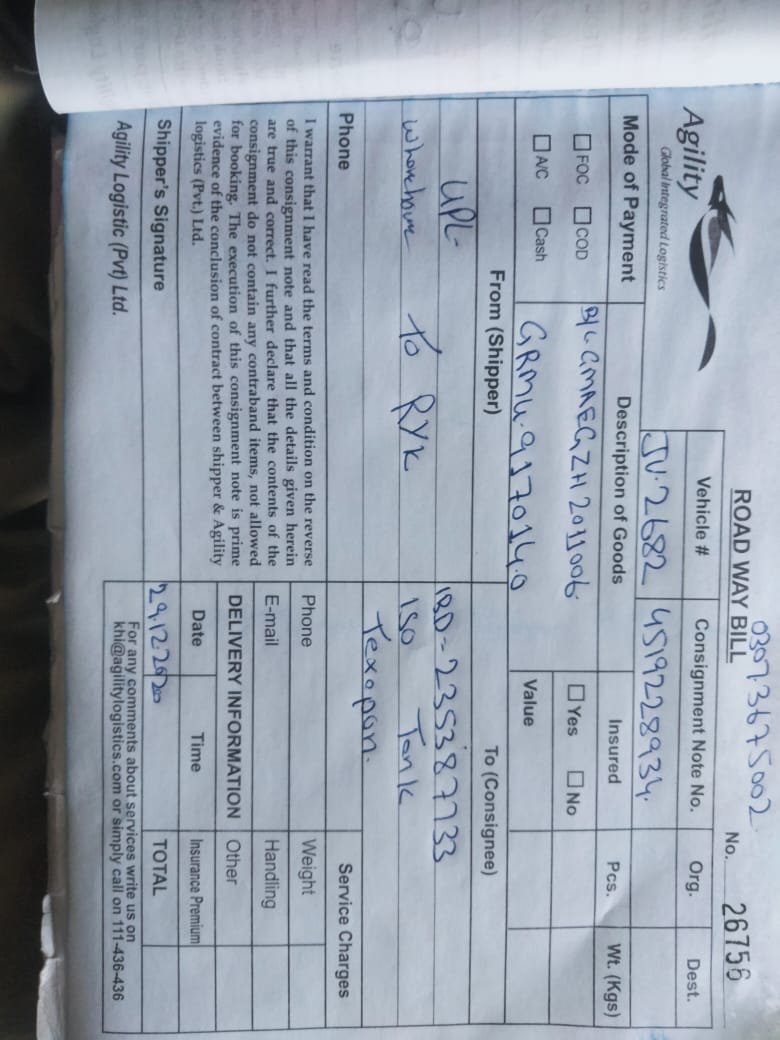 03073675002
ROAD WAY BILL
No. 26756
Agility
Global Integrated Logistics
Vehicle # Consignment Note No. Org. Dest.
JU.2682 4519228934.
Mode of Payment Description of Goods Insured Pcs. Wt. (Kgs)
FOC COD B/L GMAEGZH2011006
Yes No
A/C Cash GRMU.917014.0
Value
From (Shipper) To (Consignee)
UPL IBD-235387733
To RYK ISO Tank
Texapon.
Phone Service Charges
I warrant that I have read the terms and condition on the reverse
of this consignment note and that all the details given herein
are true and correct. I further declare that the contents of the
consignment do not contain any contraband items, not allowed
for booking. The execution of this consignment note is prime
evidence of the conclusion of contract between shipper & Agility
logistics (Pvt.) Ltd.
Phone Weight
E-mail Handling
DELIVERY INFORMATION Other
Date Time Insurance Premium
Shipper's Signature 29.12.2020 TOTAL
Agility Logistic (Pvt) Ltd.
For any comments about services write us on
khi@agilitylogistics.com or simply call on 111-436-436